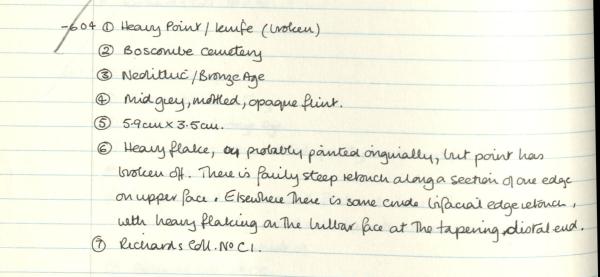 -604 ① Heavy Point/knife (broken)
② Boscombe cemetery
③ Neolithic/Bronze Age
④ Mid grey, mottled, opaque flint.
⑤ 5.9cm x 3.5cm.
⑥ Heavy flake, probably pointed originally, but point has
broken off. There is fairly steep retouch along a section of one edge
on upper face. Elsewhere there is some crude bifacial edge retouch,
with heavy flaking on the bulbar face at the tapering, distal end.
⑦ Richards Coll. No C1.